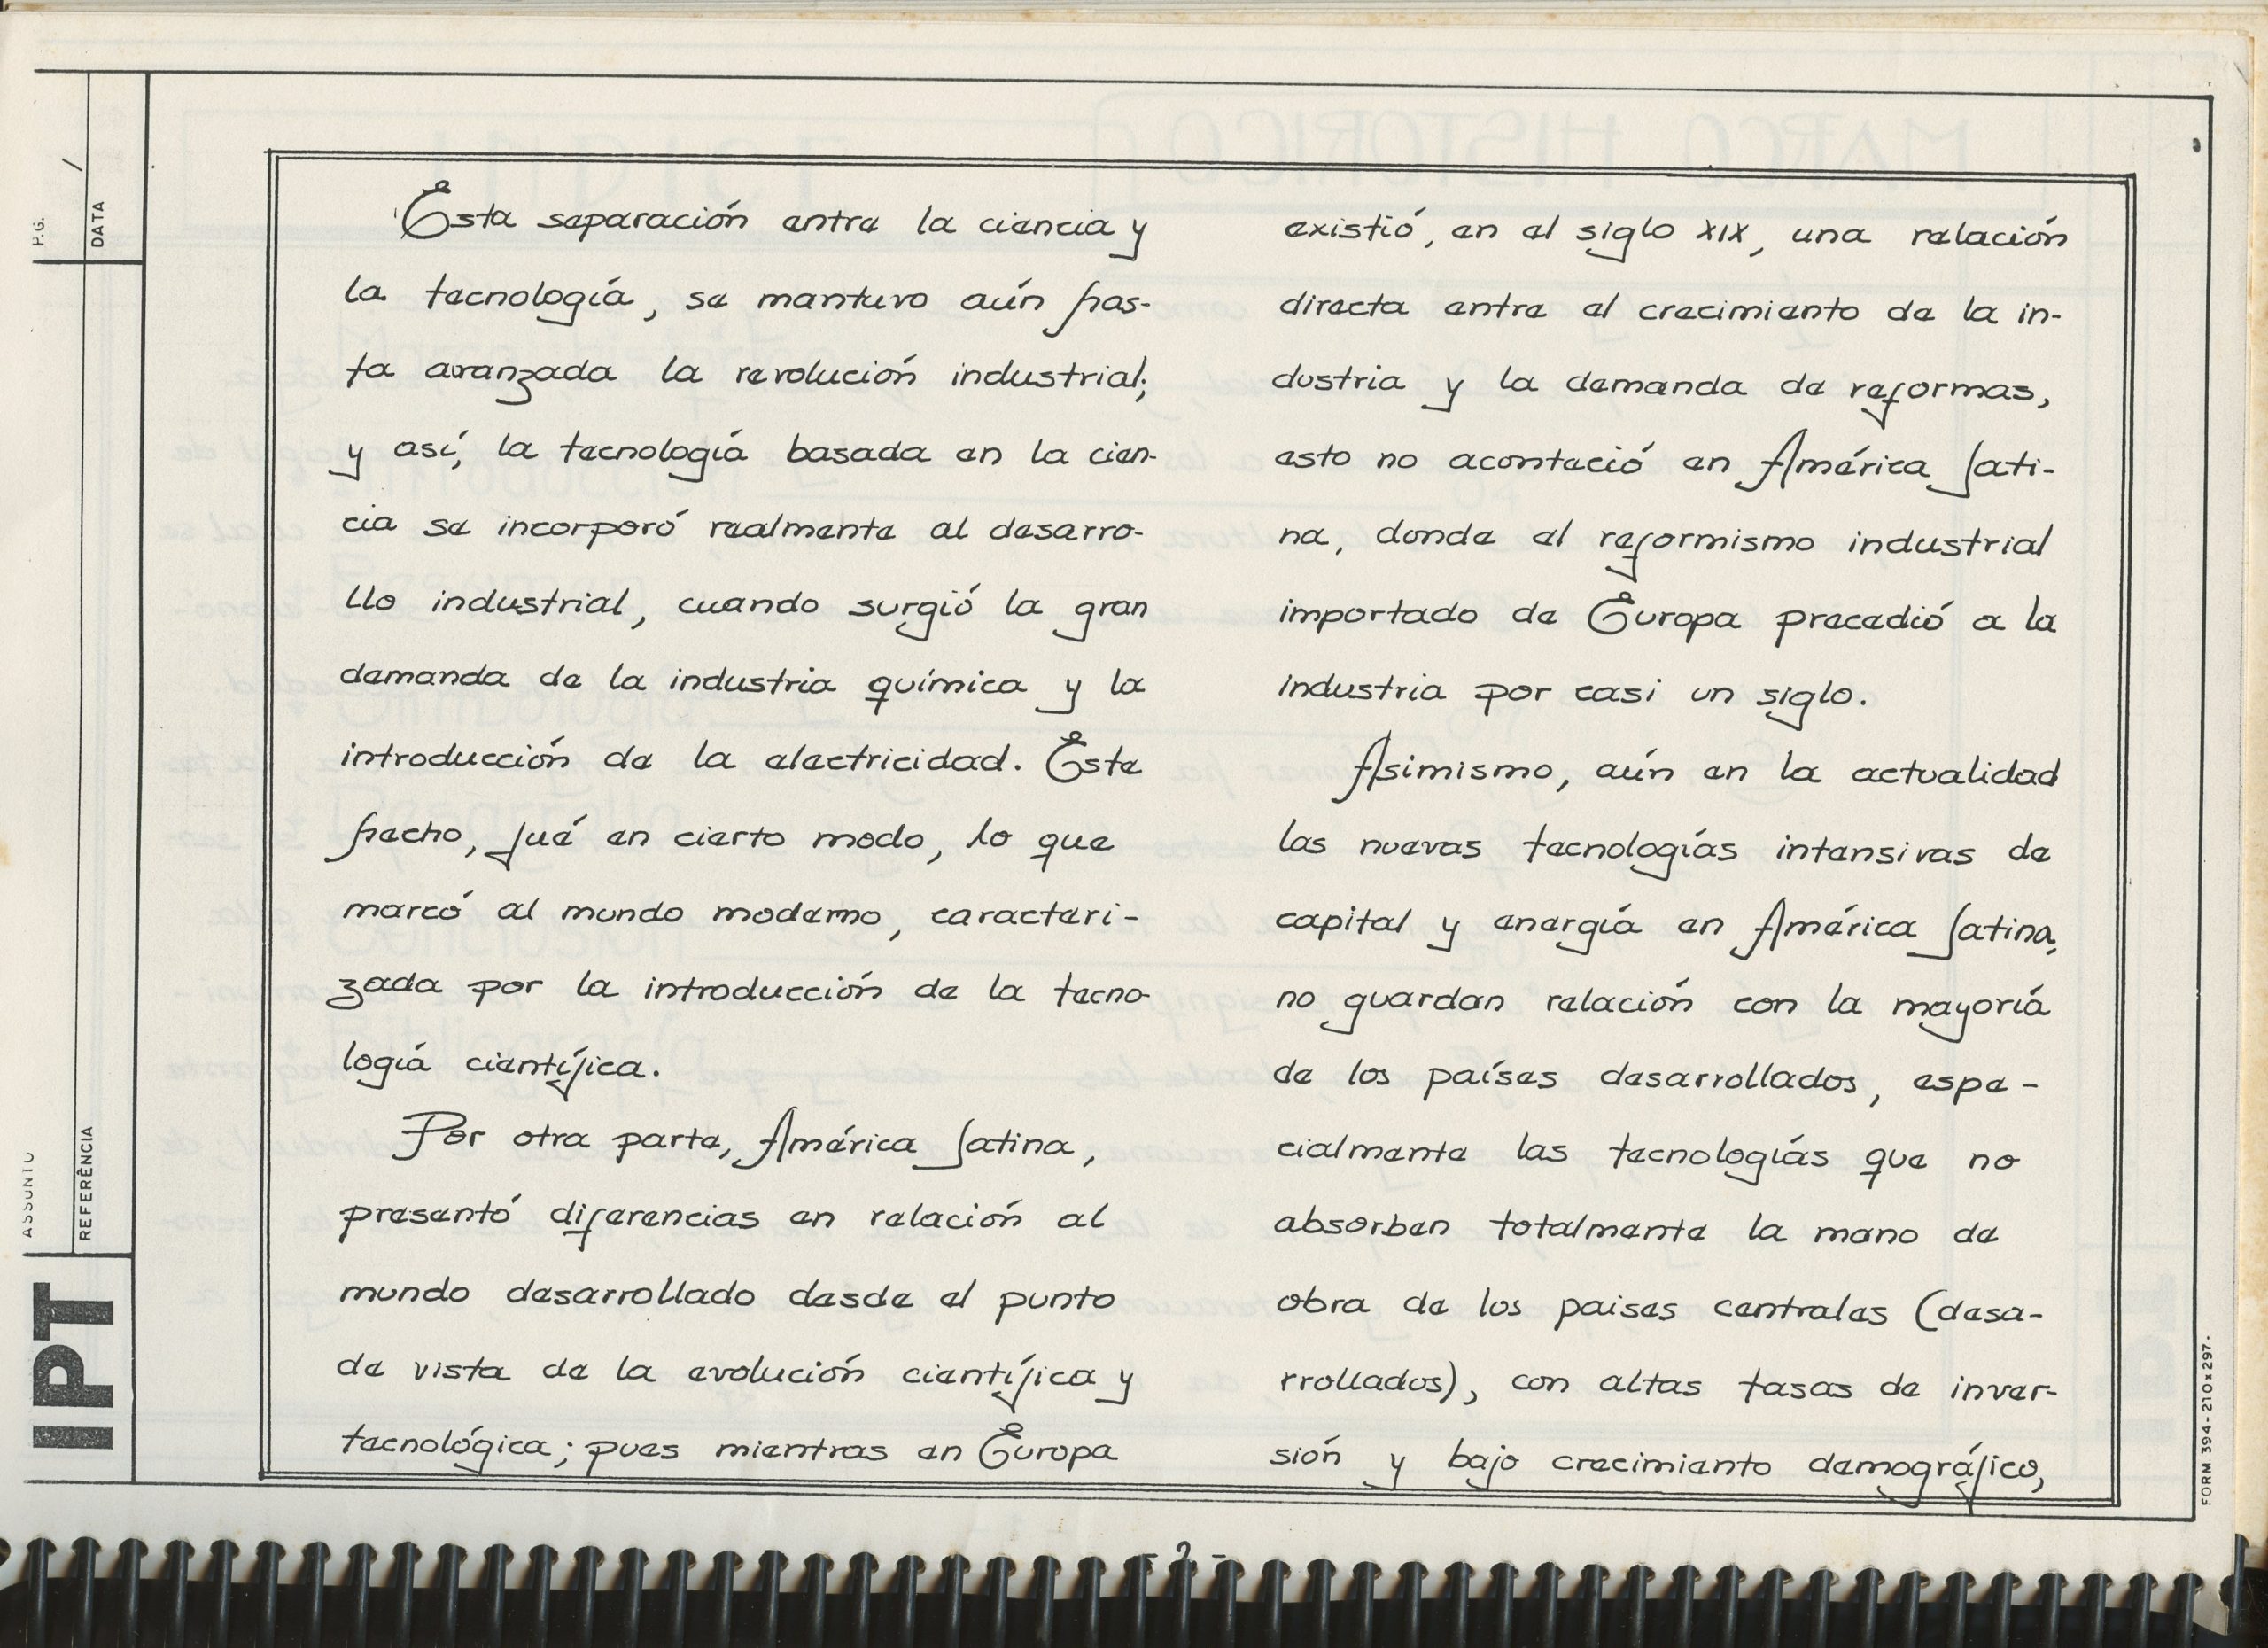 Esta separación entre la ciencia y
la tecnología, se mantuvo aún has-
ta avanzada la revolución industrial;
y así, la tecnología basada en la cien-
cia se incorporó realmente al desarro-
llo industrial, cuando surgió la gran
demanda de la industria química y la
introducción de la electricidad. Este
hecho, fué en cierto modo, lo que
marcó al mundo moderno, caracteri-
zada por la introducción de la tecno-
logía científica.
Por otra parte, América Latina,
presentó diferencias en relación al
mundo desarrollado desde el punto
de vista de la evolución científica y
tecnológica; pues mientras en Europa
existió, en el siglo XIX, una relación
directa entre el crecimiento de la in-
dustria y la demanda de reformas,
esto no aconteció en América Lati-
na, donde el reformismo industrial
importado de Europa precedió a la
industria por casi un siglo.
Asimismo, aún en la actualidad
las nuevas tecnologías intensivas de
capital y energía en América Latina,
no guardan relación con la mayoría
de los países desarrollados, espe-
cialmente las tecnologías que no
absorben totalmente la mano de
obra de los paises centrales (desa-
rrollados), con altas tasas de inver-
sión y bajo crecimiento demográfico,
- 2 -
P.G. /
DATA
ASSUNTO
REFERÊNCIA
IPT
FORM. 394-210x297-